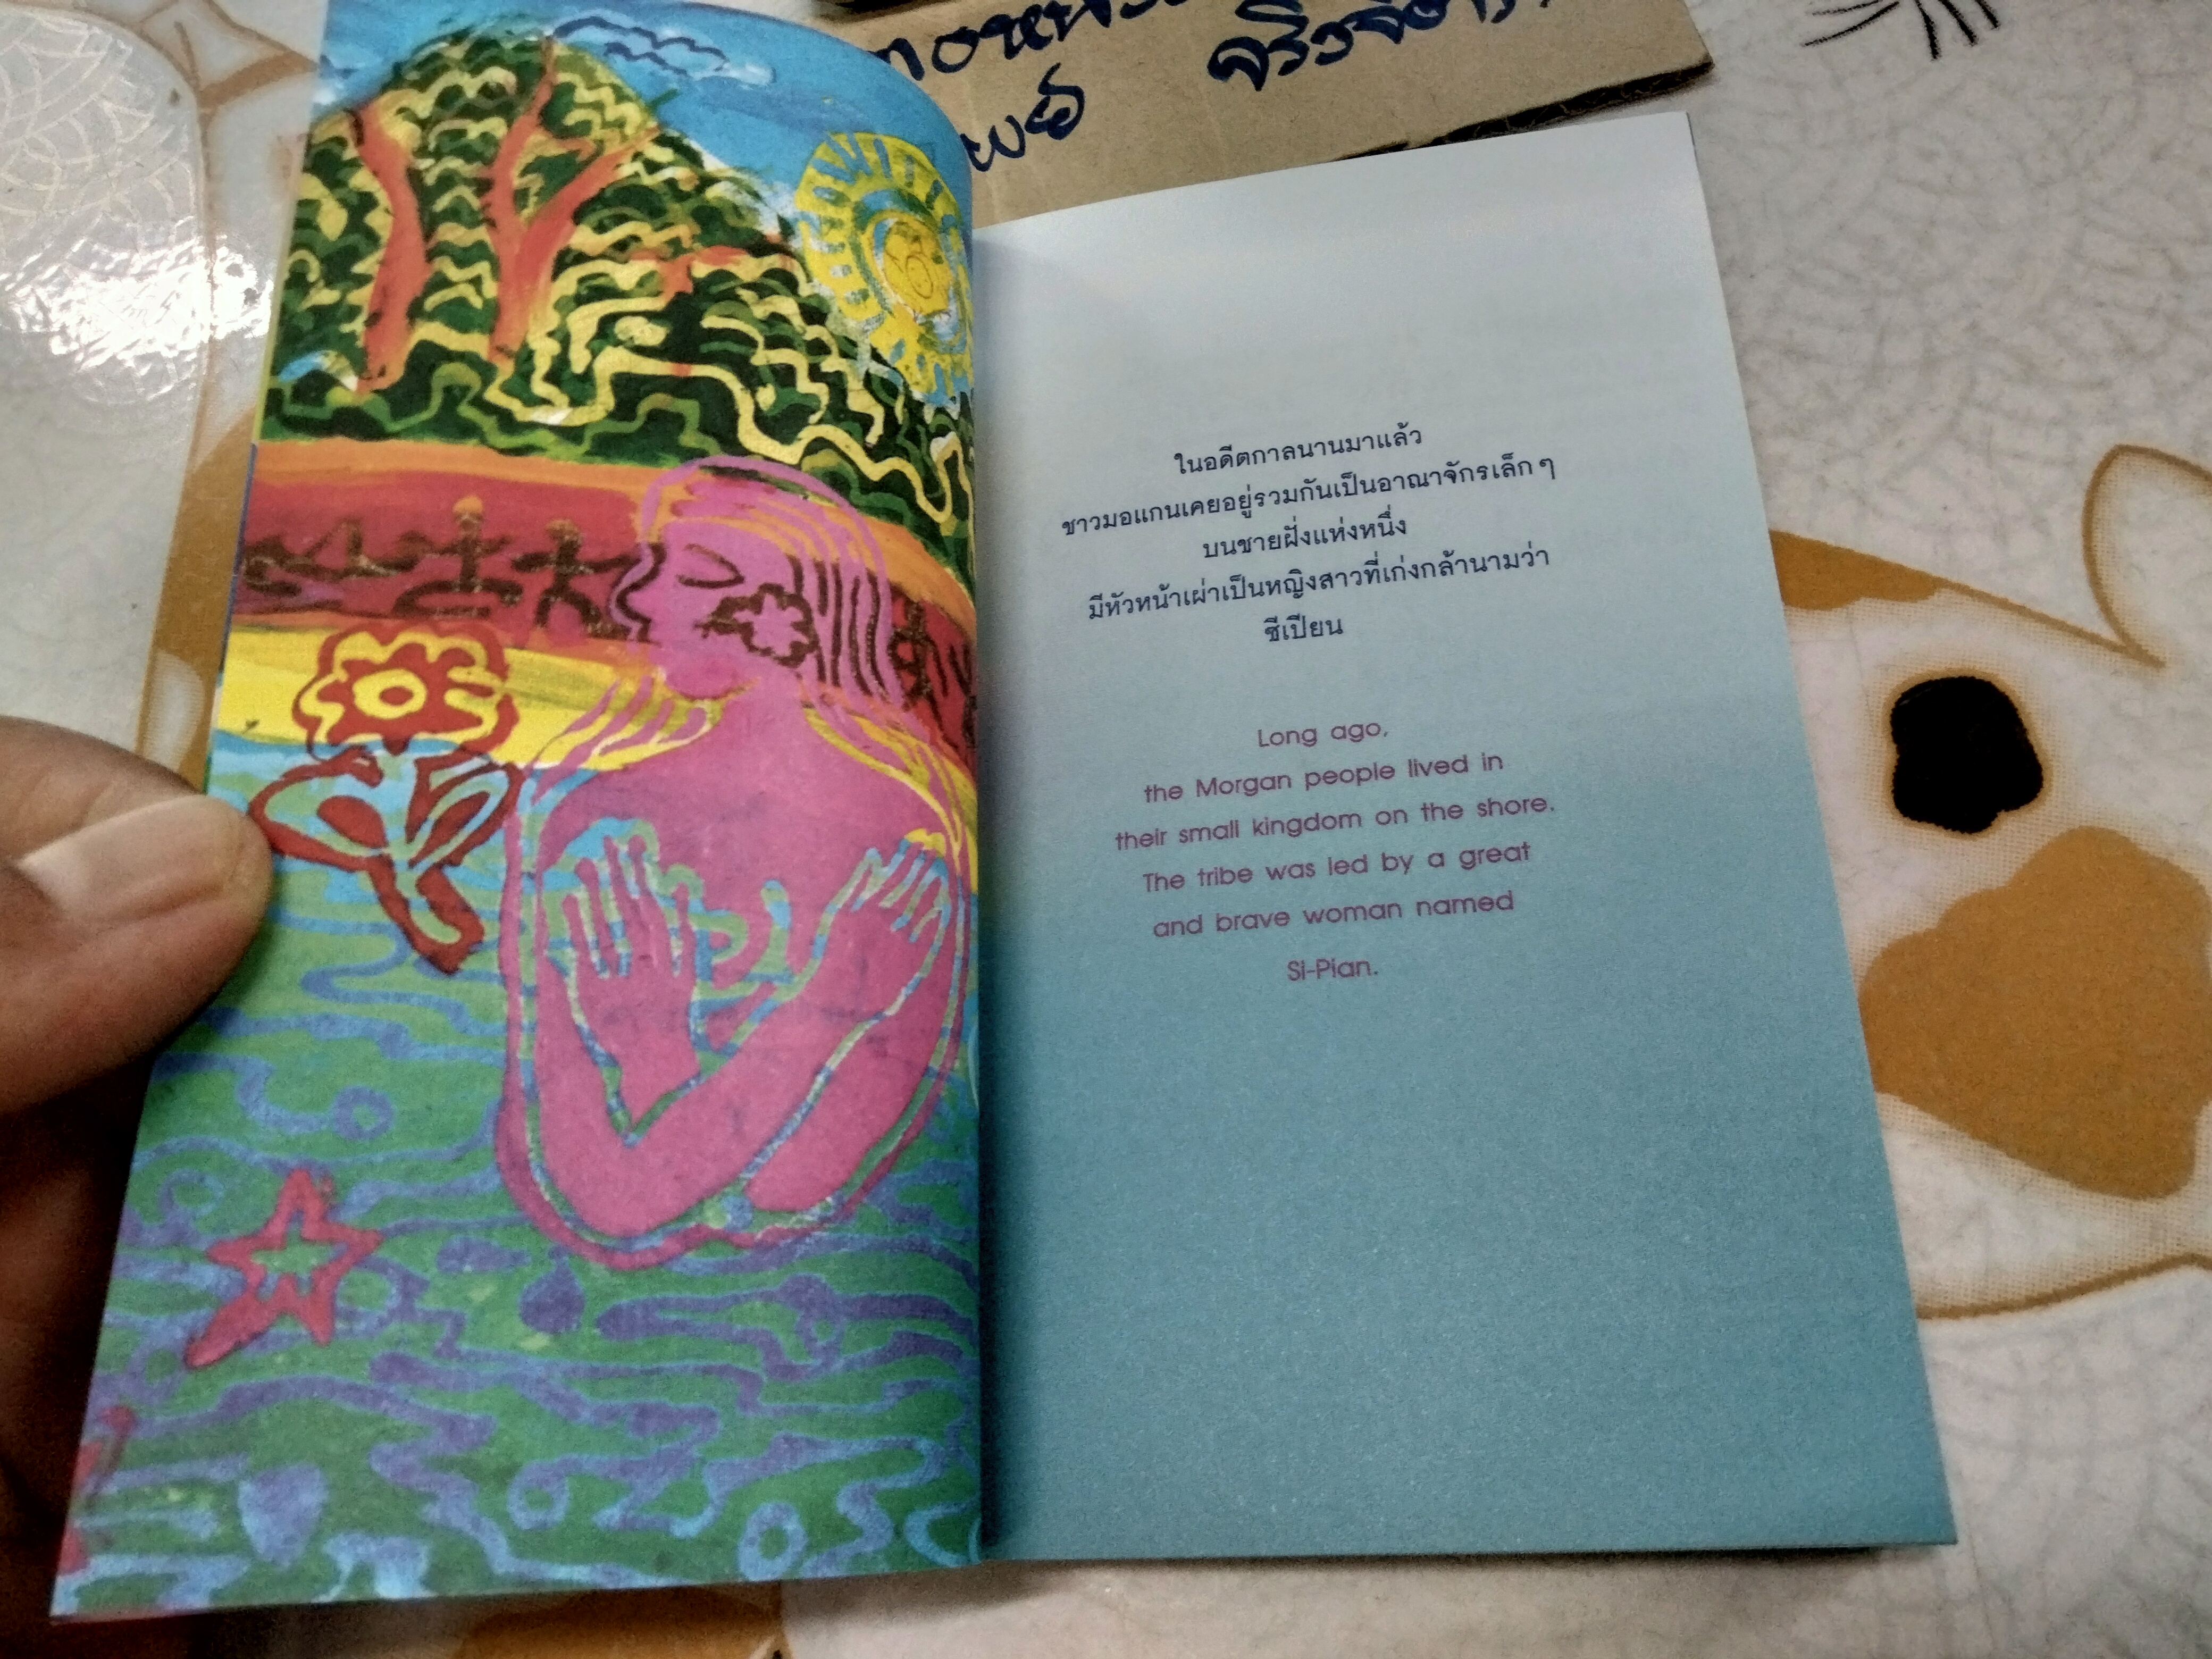 ในอดีตกาลนานมาแล้ว
ชาวมอแกนเคยอยู่รวมกันเป็นอาณาจักรเล็กๆ
บนชายฝั่งแห่งหนึ่ง
มีหัวหน้าเผ่าเป็นหญิงสาวที่เก่งกล้านามว่า
ซีเปียน
Long ago,
the Morgan people lived in
their small kingdom on the shore.
The tribe was led by a great
and brave woman named
Si-Pian.